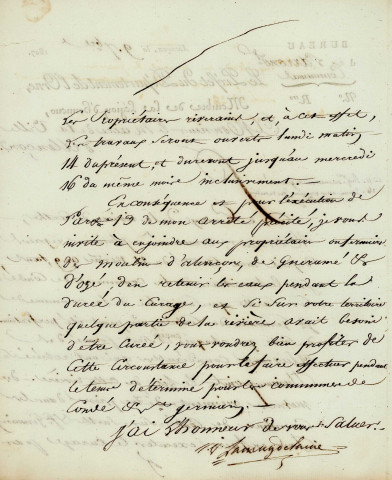 les Propriétaires riverains, et, à cet effet,
des travaux seront ouverts lundi matin
14 du présent, et dureront jusqu'au mercredi
16 du même mois inclusivement.
En conséquence et pour l'exécution de
l'art. 13 de mon arrêté précité, je vous
invite à enjoindre aux propriétaires ou fermiers
des moulins d'alençon, de &
d'ozé, d'en retenir les eaux pendant la
durée du Curage, et si sur votre territoire
quelque partie de la rivière avait besoin
d'être Curée, vous voudrez bien profiter de
Cette Circonstance pour le faire effectuer pendant
le tems déterminé pour les communes de
Condé & St germain.
J'ai l'honneur de vous Saluer.